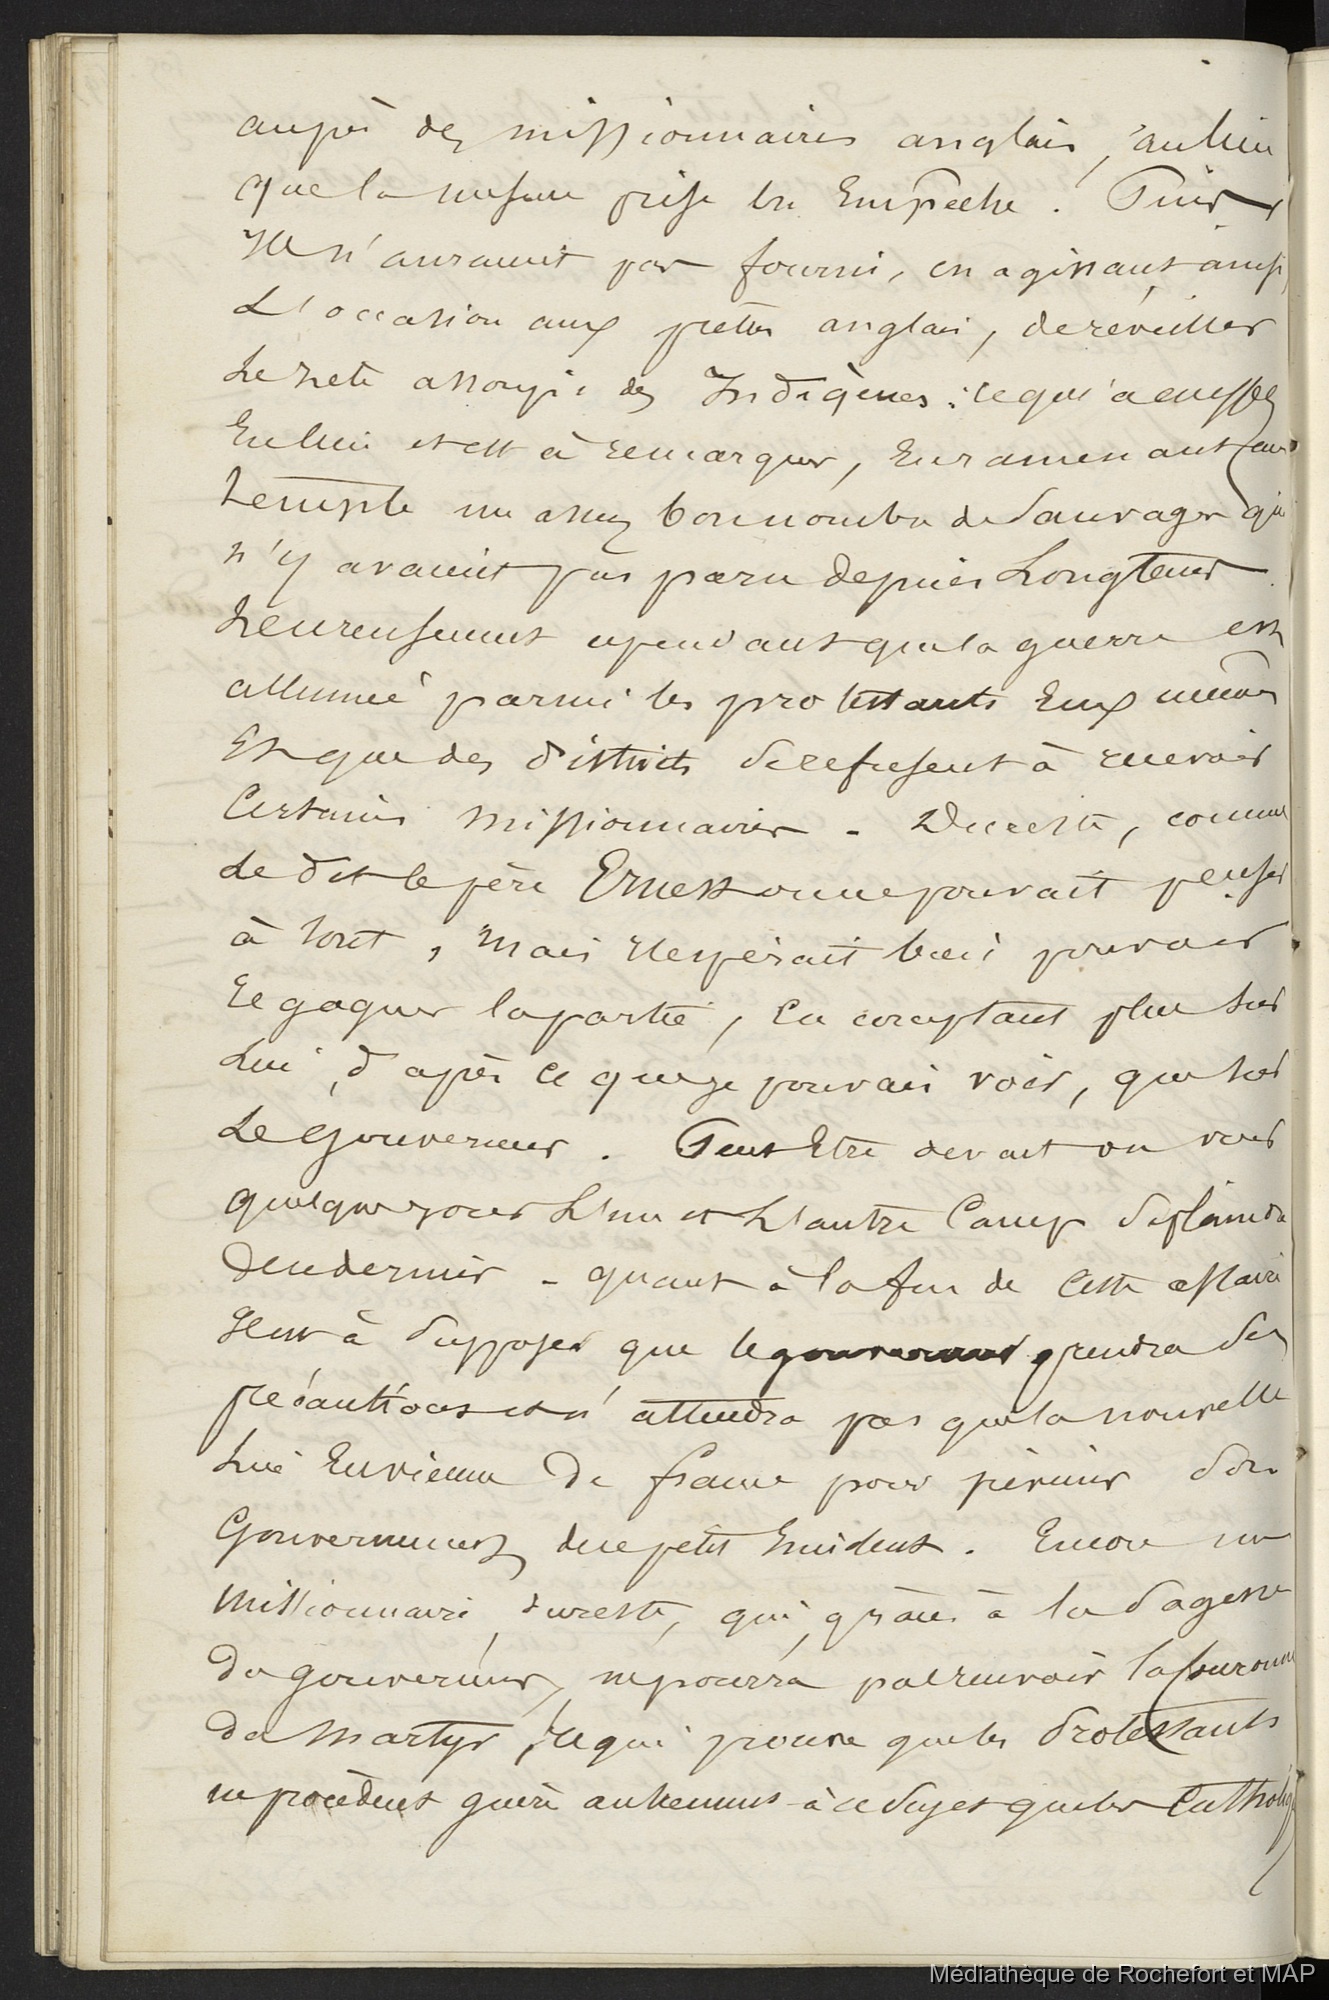 auprès des missionnaires anglais, au lieu
que la mesure prise les Empêche. Puis
Ils n'auraient pas fourni, en agissant ainsi,
L'occasion aux prêtres anglais, de réveiller
Le zele assoupi des Indigènes : ce qui a eu effet
Eu lieu et est à remarquer, En ramenant au
temple un assez bon nombre de Sauvages qui
n'y avaient pas paru depuis Longtems.
heureusement cependant que la guerre est
allumée parmi les protestants Eux mêmes
Et que des districts se refusent à recevoir
Certains missionnaires - Du reste, comme
Le dit le père Ernest on ne pouvait penser
à tout, mais Il espérait bien pouvoir
Regagner la partie, En comptant plus sur
Lui, d'après ce que je pouvais voir, que sur
Le gouverneur. Peut Etre devait on voir
quelque jour L'un et L'autre Camp se plaindre
de ce dernier - quant à la fin de Cette affaire
Il est à supposer que le gouverneur prendra ses
précautions et n'attendra pas que la nouvelle
lui En vienne De france pour prévenir son
Gouvernement de ce petit Incident. Encore un
missionnaire, du reste, qui, grâces à la sagesse
Du gouverneur, ne pourra pas recevoir la Couronne
Du Martyr, Ce qui prouve que les Protestants
ne procèdent guère autrement à ce sujet que les Catholiq
Médiathèque de Rochefort et MAP